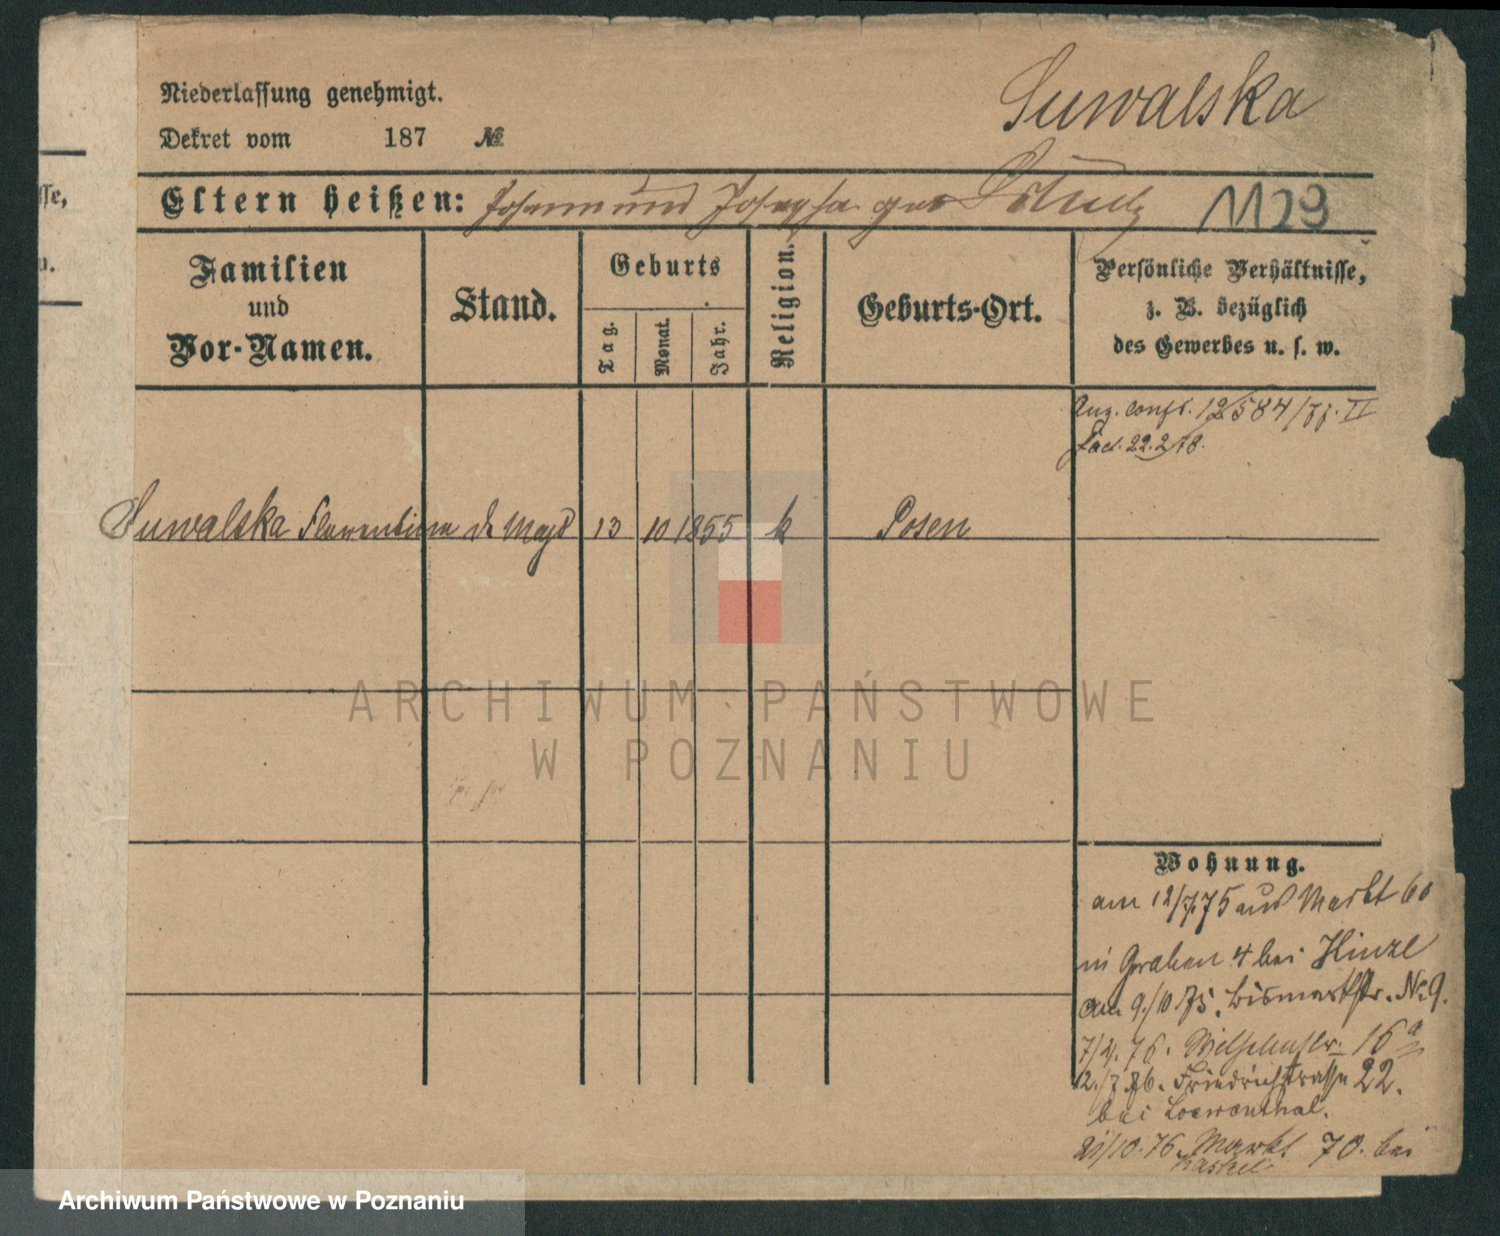 Niederlassung genehmigt.
Dekret vom 187 №
Suwalska
Eltern heißen: Johann und Josepha geb 1129
sse,
u.
Familien
und
Vor-Namen.
Stand.
Geburts
Tag.
Monat.
Jahr.
Religion.
Geburts-Ort.
Persönliche Verhältnisse,
z. B. bezüglich
des Gewerbes u. s. w.
12584/77. II
22.2.78.
Suwalska Florentine d. Magd 13 10 1855 k Posen
ARCHIWUM PAŃSTWOWE
W POZNANIU
Wohnung.
am 12/7.75 aus Markt 60
in Graben 4 bei Hinze
am 9./10.75. Bismarkstr. No 9.
76. Wilhelmstr. 16 a
12./7.76. Friedrichstrasse 22.
bei Loewenthal.
21/10.76. Markt 70. bei
Archiwum Państwowe w Poznaniu